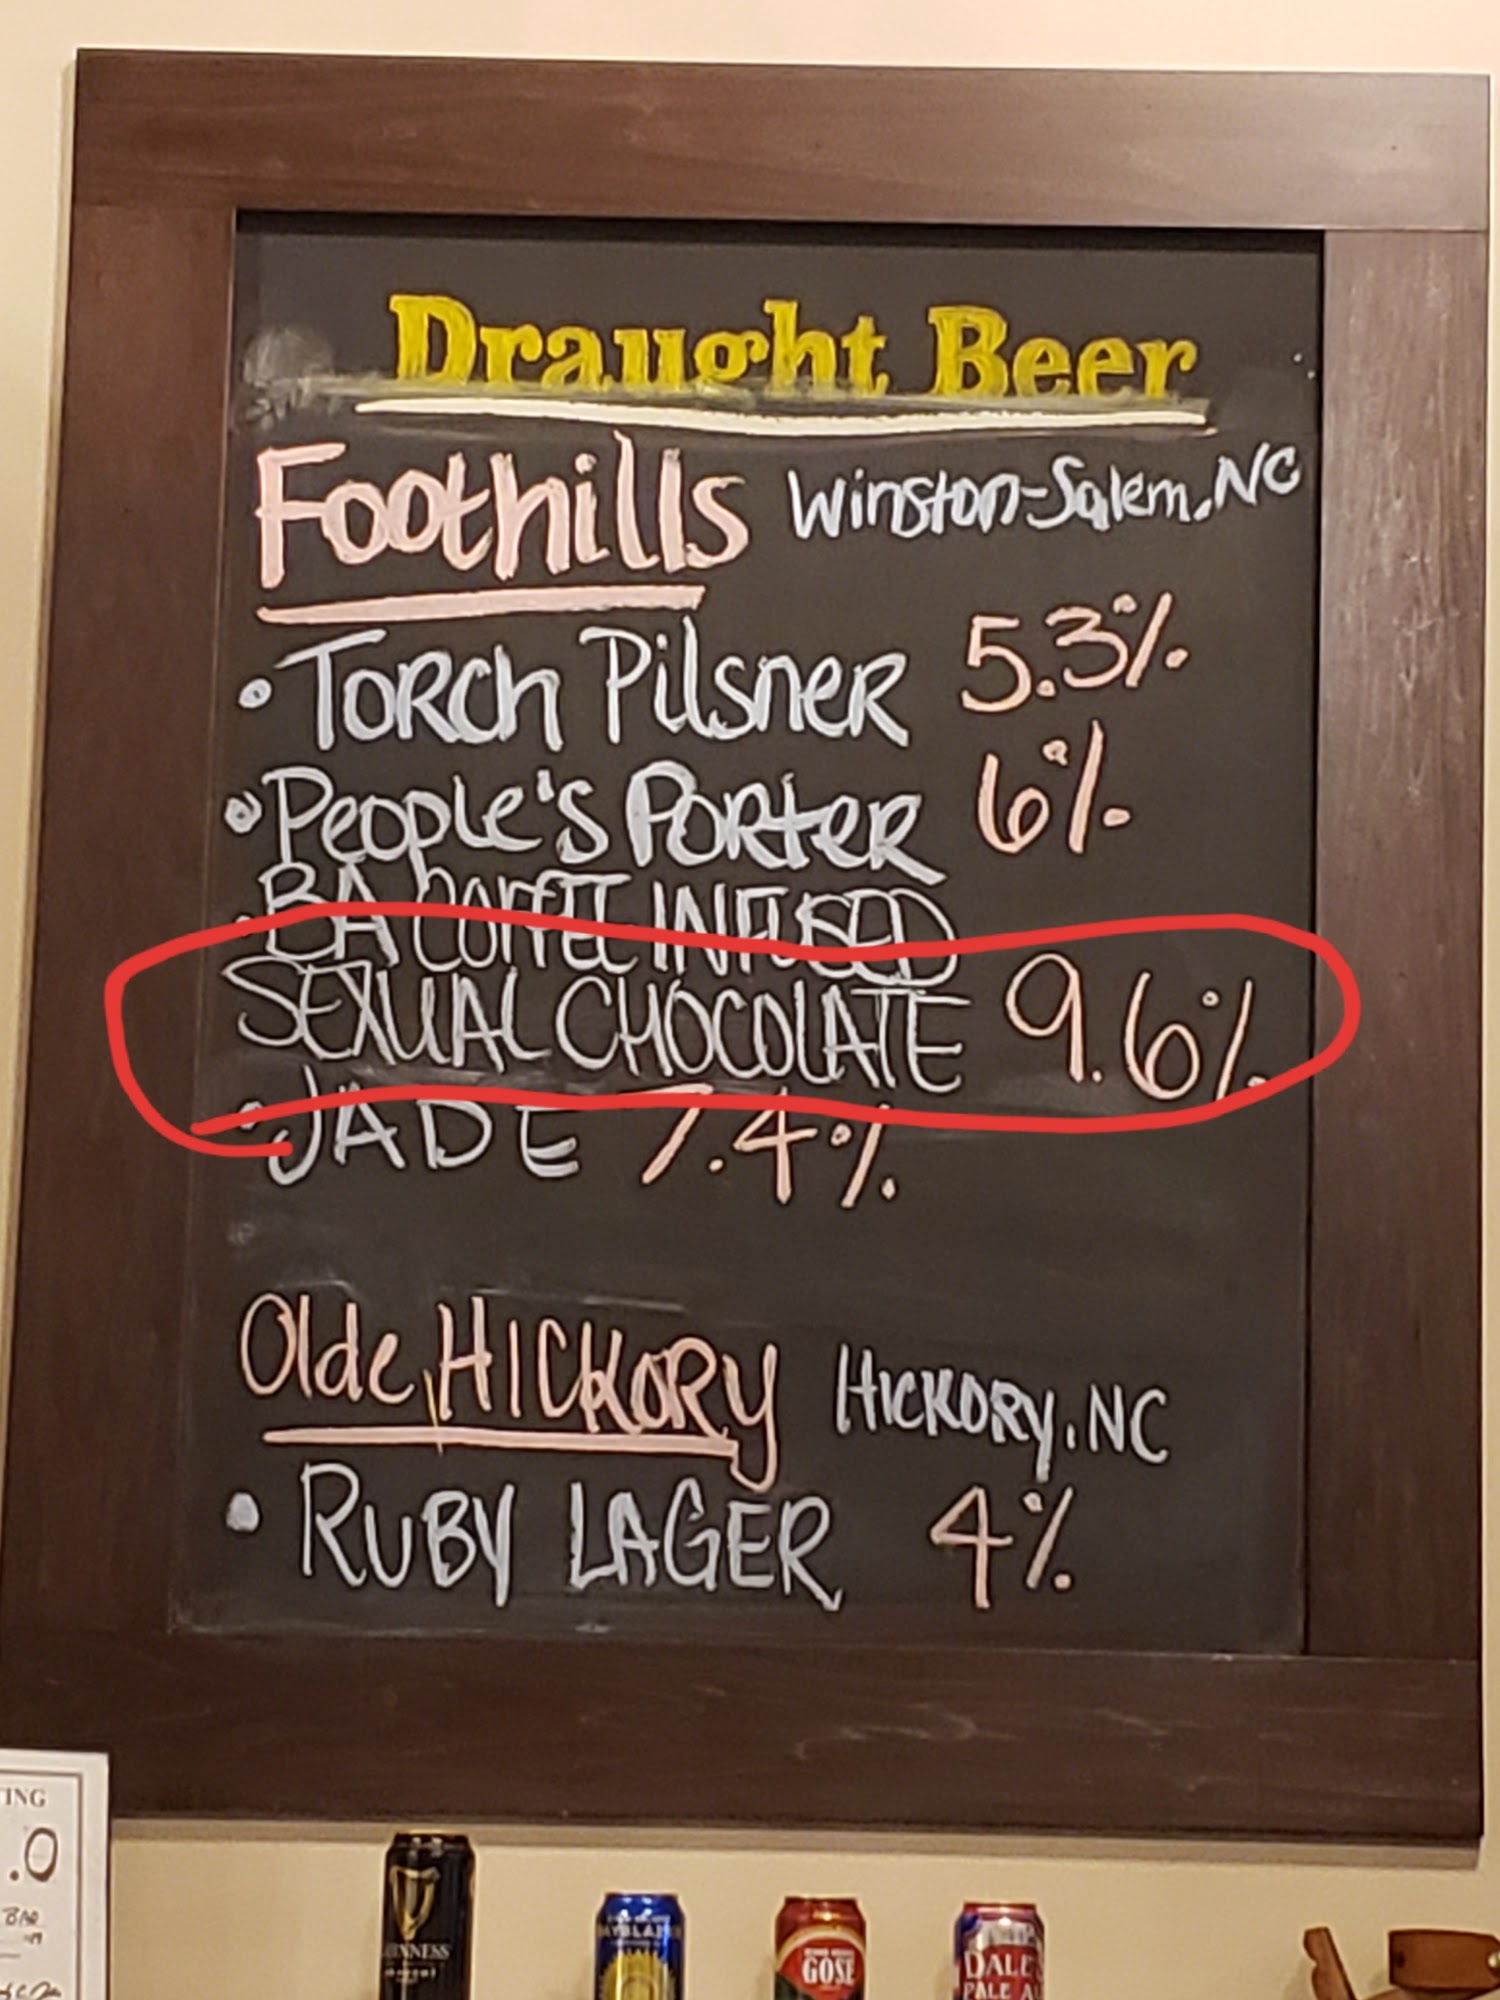 Draught Beer
Foothills Winston-Salem, NC
• Torch Pilsner 5.3%
• People's Porter 6%
• BA COFFEE INFUSED
SEXUAL CHOCOLATE 9.6%
• JADE 7.4%
Olde HICKORY HICKORY, NC
• RUBY LAGER 4%
TING
.0
BAR
GUINNESS
GOSE
DALE'S
PALE A